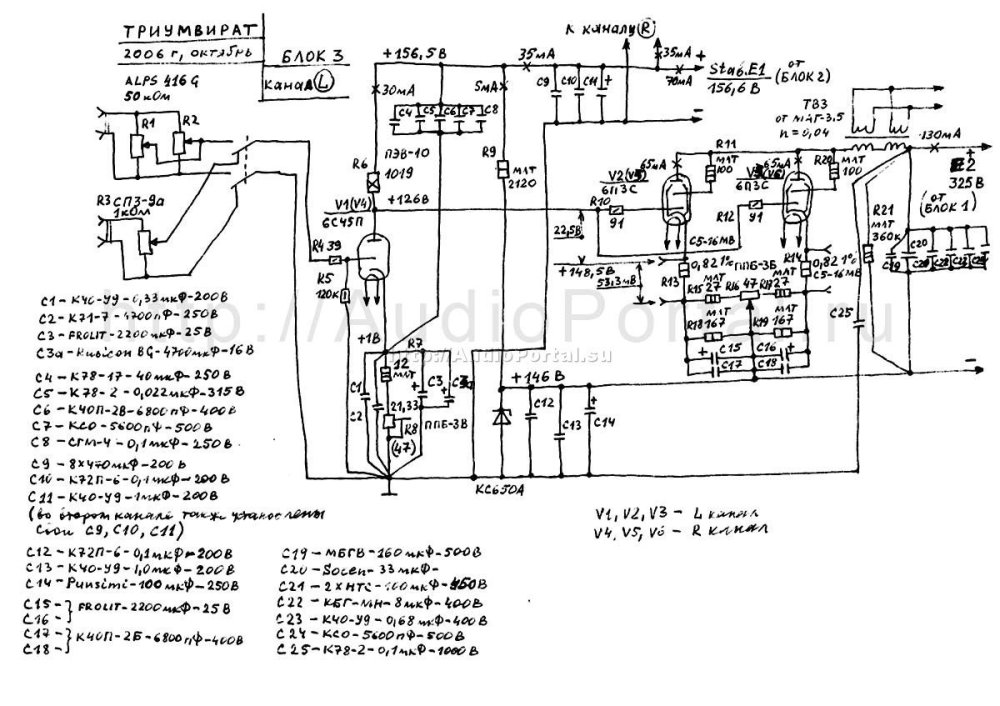 ТРИУМВИРАТ
2006 г, октябрь
БЛОК 3
канал L
ALPS 416 G
50 кОм
R1
R2
R3 СП3-9а
1кОм
+156,5В
30мА
C4
C5
C6
C7
C8
ПЭВ-10
R6
1019
V1(V4)
6С45П
+126В
R4 39
R5
120к
+1В
R7
12
МЛТ
C1
C2
21,33
R8
(47)
C3
ППБ-3В
5мА
R9
МЛТ
2120
35мА
C9
C10
C11
+
К каналу R
35мА
+
70мА
Stab.E1
156,6 В
(от
БЛОК 2)
-
ТВ3
от МАГ-3.5
n = 0,04
130мА
+
E2
325 В
(от
БЛОК 1)
65мА
V2
6П3С
R10
91
R11
МЛТ
100
65мА
6П3С
R12
91
R20
МЛТ
100
22,5В
+148,5В
53,3мВ
C5-16МВ
R13
0,82 1%
ППБ-3Б
R14
0,82 1%
C5-16МВ
R15
МЛТ
27
R16
47
R17
МЛТ
27
R18
МЛТ
167
R19
МЛТ
167
+
C15
C17
C16
+
C18
R21
МЛТ
360к
C19
C20
C25
+146В
C12
C13
+
C14
КС650А
-
http://AudioPortal.su
С1 – К40-У9 – 0,33мкФ – 200В
С2 – К71-7 – 4700пФ – 250В
С3 – FROLIT – 2200мкФ – 25В
С3а – Rubicon BG – 4700мкФ – 16В
С4 – К78-17 – 40мкФ – 250В
С5 – К78-2 – 0,022мкФ – 315В
С6 – К40П-2В – 6800пФ – 400В
С7 – КСО – 5600пФ – 500В
С8 – СГМ-4 – 0,1мкФ – 250В
С9 – 8х470мкФ – 200В
С10 – К72П-6 – 0,1мкФ – 200В
С11 – К40-У9 – 1мкФ – 200В
(во втором канале также установлены
свои С9, С10, С11)
С12 – К72П-6 – 0,1мкФ – 200В
С13 – К40-У9 – 1,0мкФ – 200В
С14 – Punsimi – 100мкФ – 250В
С15 –
С16 –
} FROLIT – 2200мкФ – 25В
С17 –
С18 –
} К40П-2Б – 6800пФ – 400В
С19 – МБГВ – 160мкФ – 500В
С20 – Solen – 33мкФ –
С21 – 2хHTC –
С22 – КБГ-МН – 8мкФ – 400В
С23 – К40-У9 – 0,68мкФ – 400В
С24 – КСО – 5600пФ – 500В
С25 – К78-2 – 0,1мкФ – 1000В
V1, V2, V3 – L канал
V4, V5, V6 – R канал